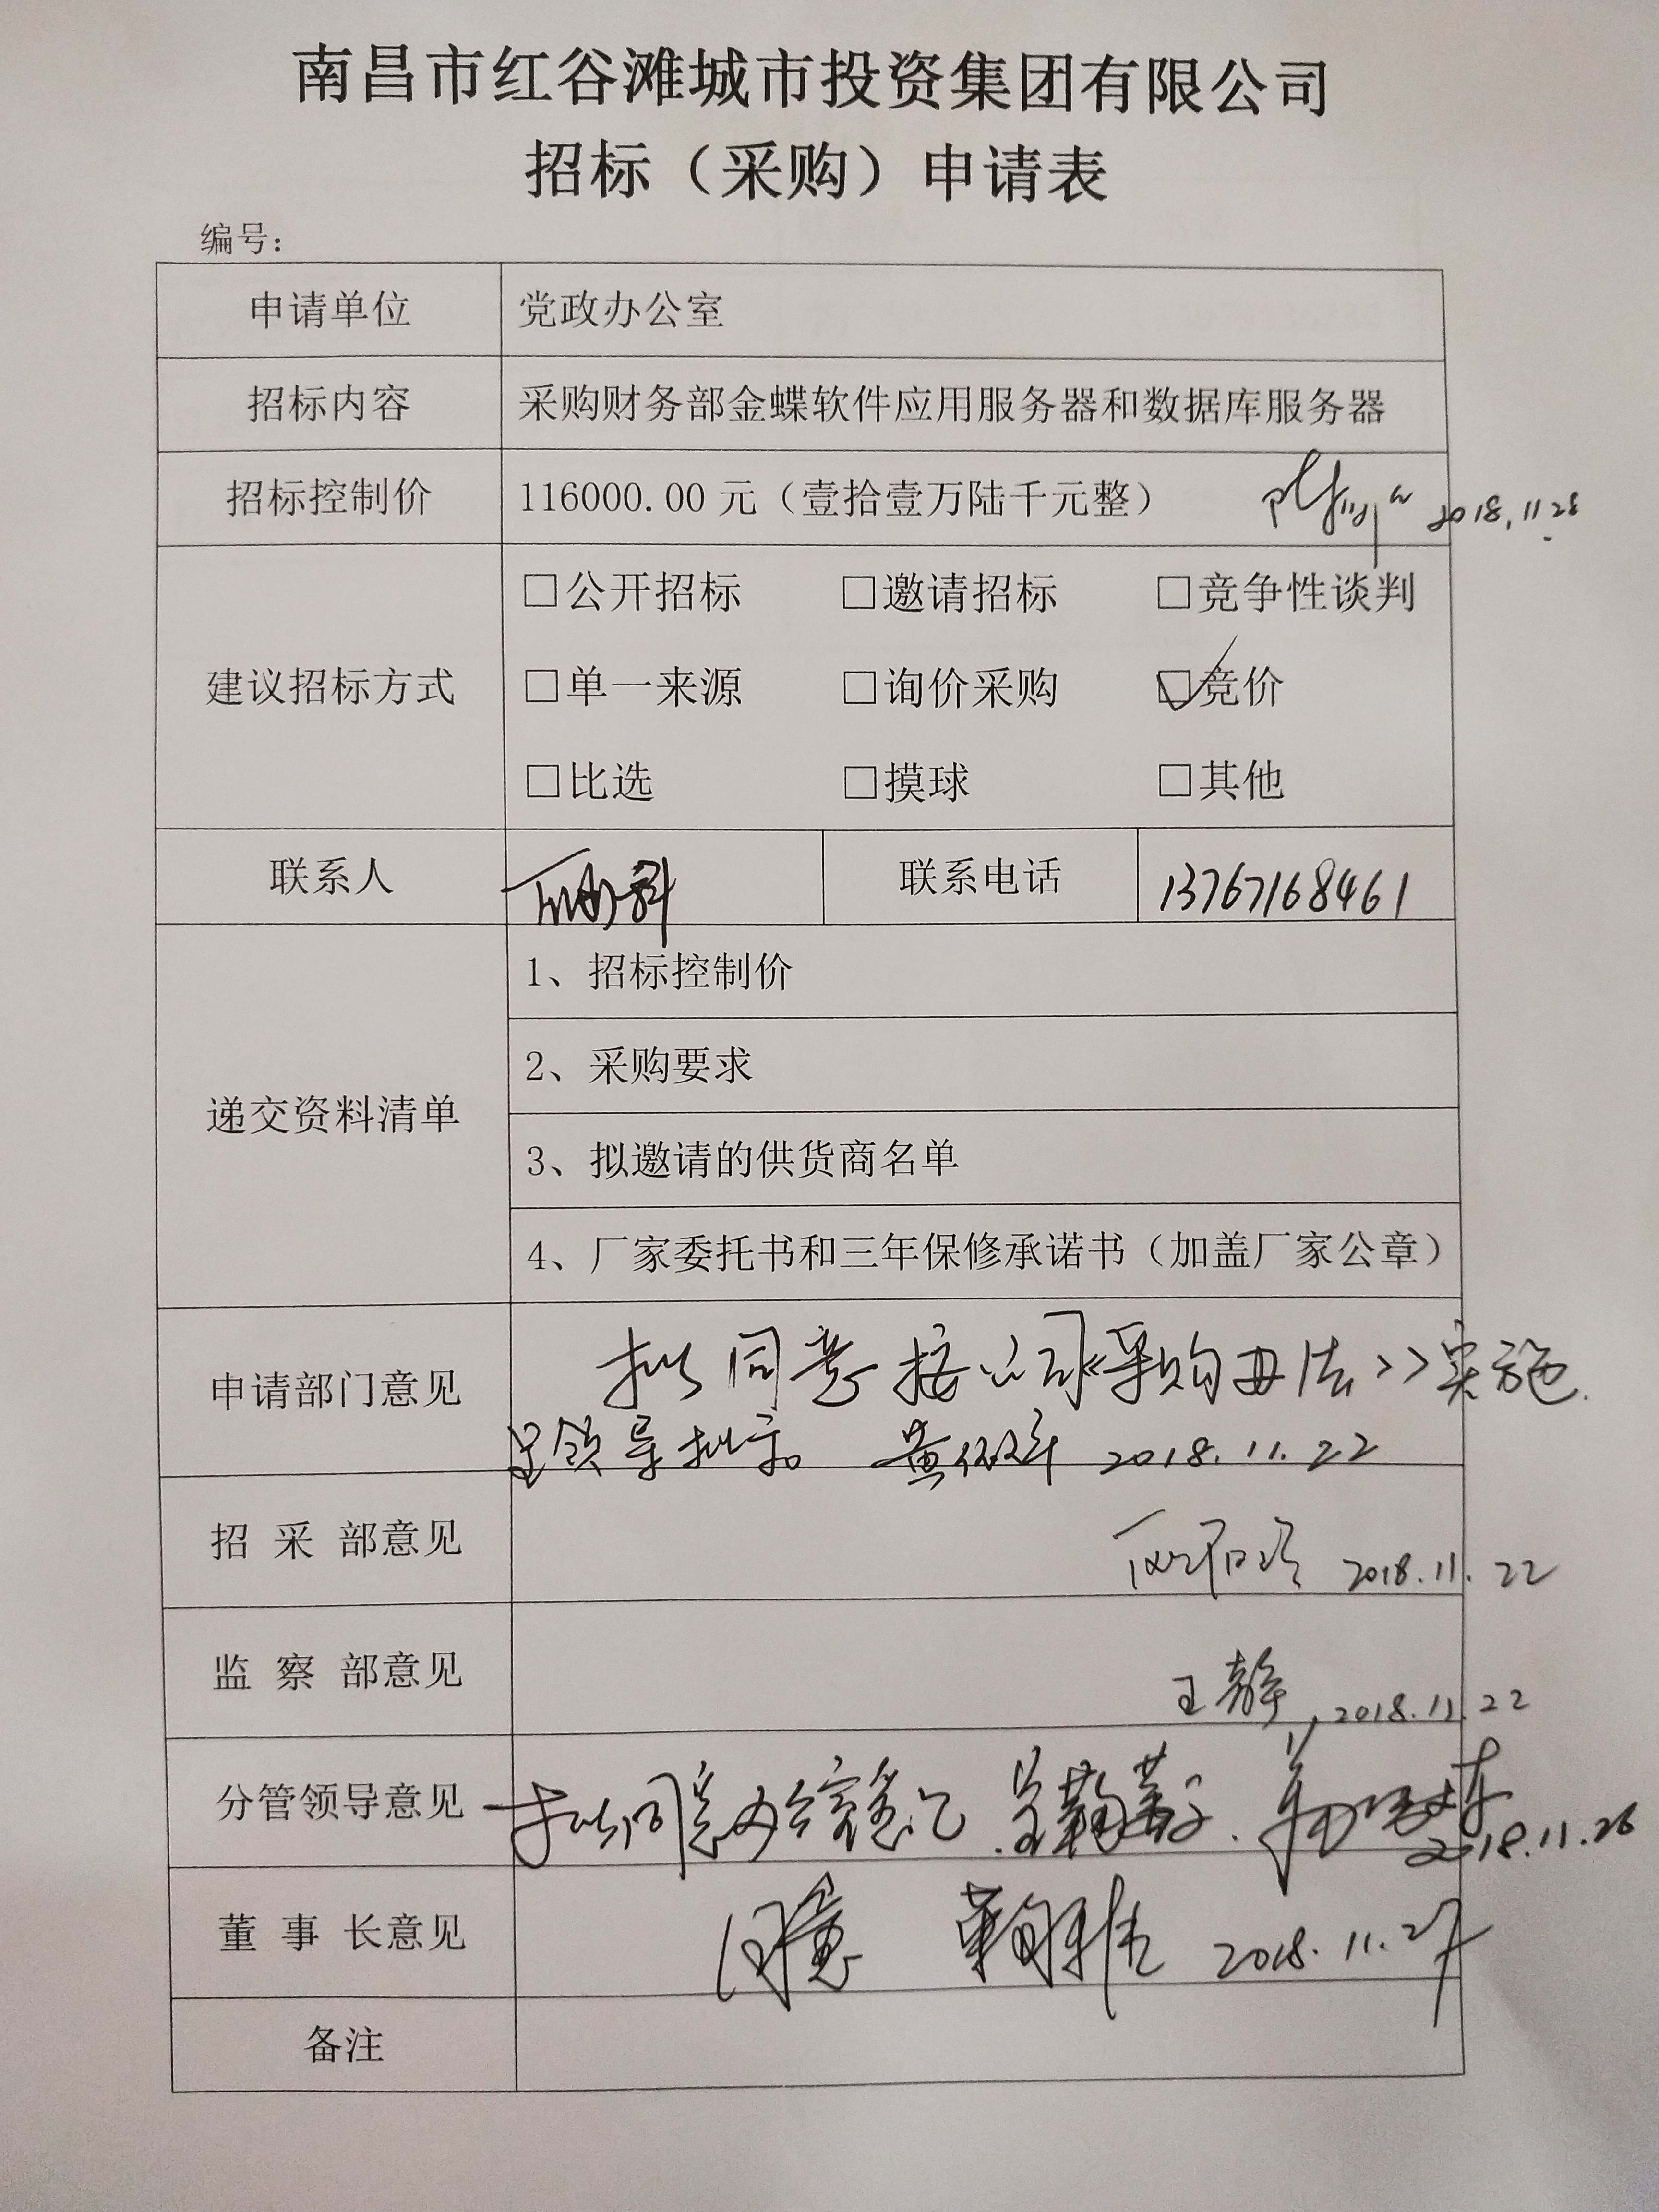 南昌市红谷滩城市投资集团有限公司
招标（采购）申请表
编号：
申请单位 党政办公室
招标内容 采购财务部金蝶软件应用服务器和数据库服务器
招标控制价 116000.00 元（壹拾壹万陆千元整） 2018.11.28
□公开招标 □邀请招标 □竞争性谈判
建议招标方式 □单一来源 □询价采购 ☑竞价
□比选 □摸球 □其他
联系人 联系电话 13767168461
1、招标控制价
2、采购要求
递交资料清单
3、拟邀请的供货商名单
4、厂家委托书和三年保修承诺书（加盖厂家公章）
申请部门意见 拟同意按公司《采购办法》实施.
呈领导批示。 黄 2018.11.22
招 采 部意见 2018.11.22
监 察 部意见 王静 2018.11.22
分管领导意见 拟同意 2018.11.26
董 事 长意见 同意 2018.11.27
备注